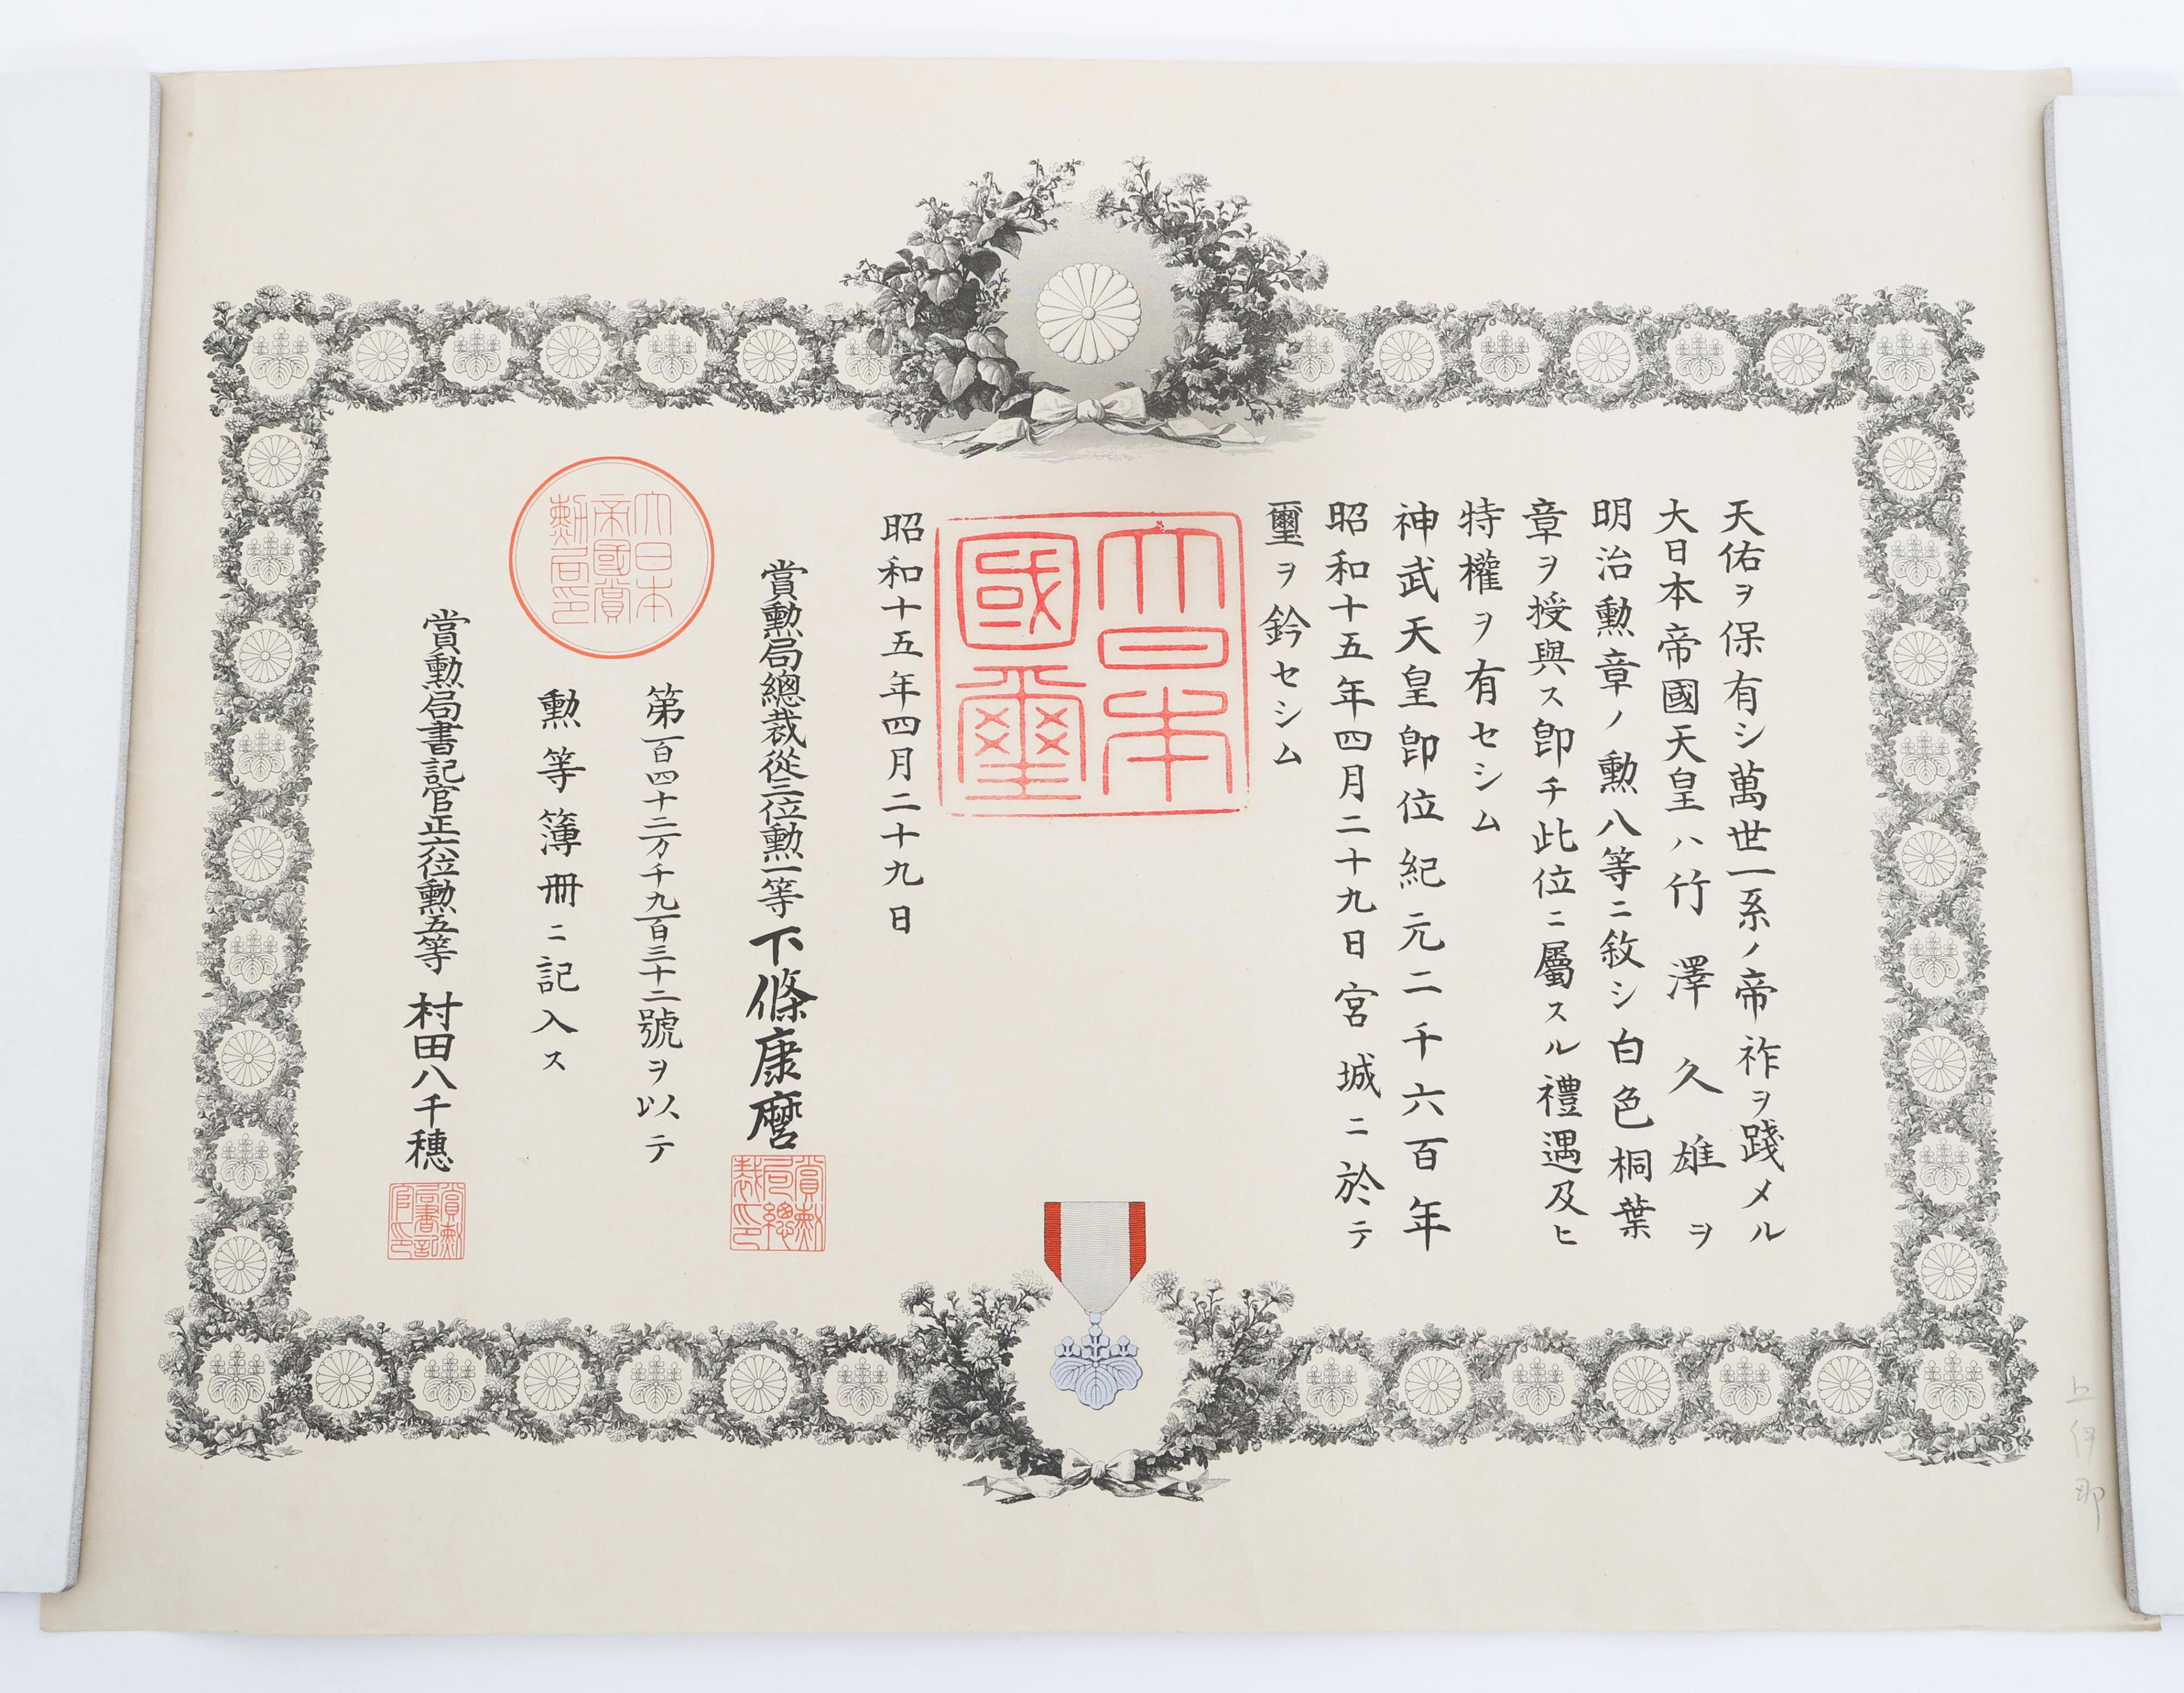 天佑ヲ保有シ萬世一系ノ帝祚ヲ踐メル
大日本帝國天皇ハ竹澤久雄ヲ
明治勲章ノ勲八等ニ敘シ白色桐葉
章ヲ授與ス卽チ此位ニ屬スル禮遇及ヒ
特權ヲ有セシム
神武天皇卽位紀元二千六百年
昭和十五年四月二十九日宮城ニ於テ
璽ヲ鈐セシム
大日本
國璽
昭和十五年四月二十九日
賞勲局總裁從三位勲一等下條康麿
賞勲
局總
裁印
第一百四十二万千九百三十二號ヲ以テ
大日本
帝國賞
勲局印
勲等簿冊ニ記入ス
賞勲局書記官正六位勲五等 村田八千穗
賞勲
局書記
官印
上伊那